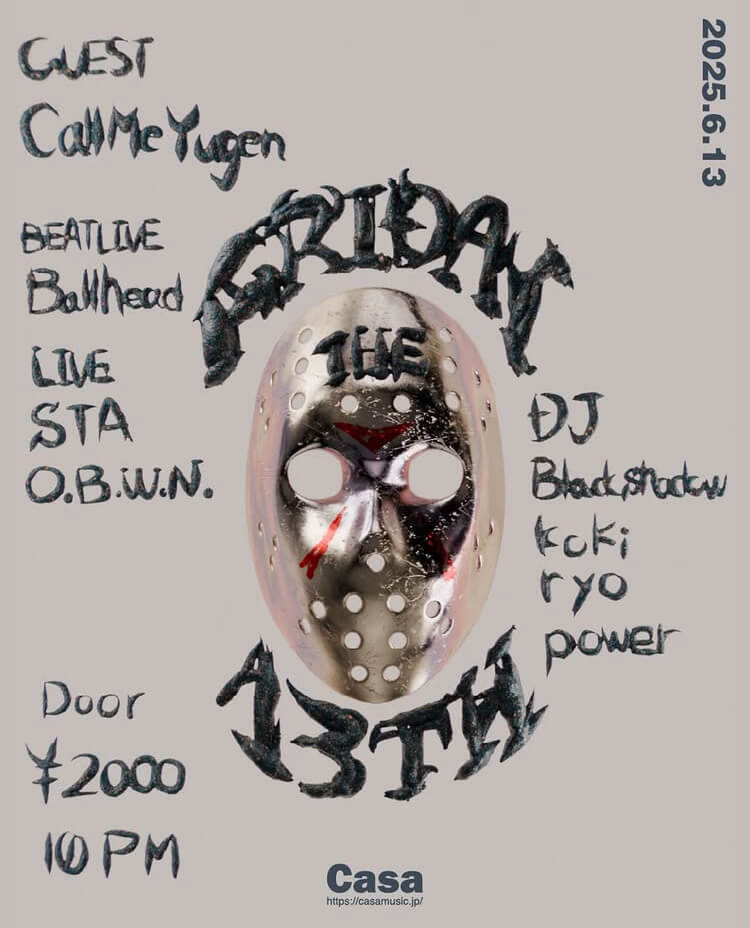 GUEST
CallMeYugen
2025.6.13
BEATLIVE
Ballhead
LIVE
STA
O.B.W.N.
FRIDAY
THE
13TH
DJ
Blackshadow
koki
ryo
power
Door
¥2000
10 PM
Casa
https://casamusic.jp/